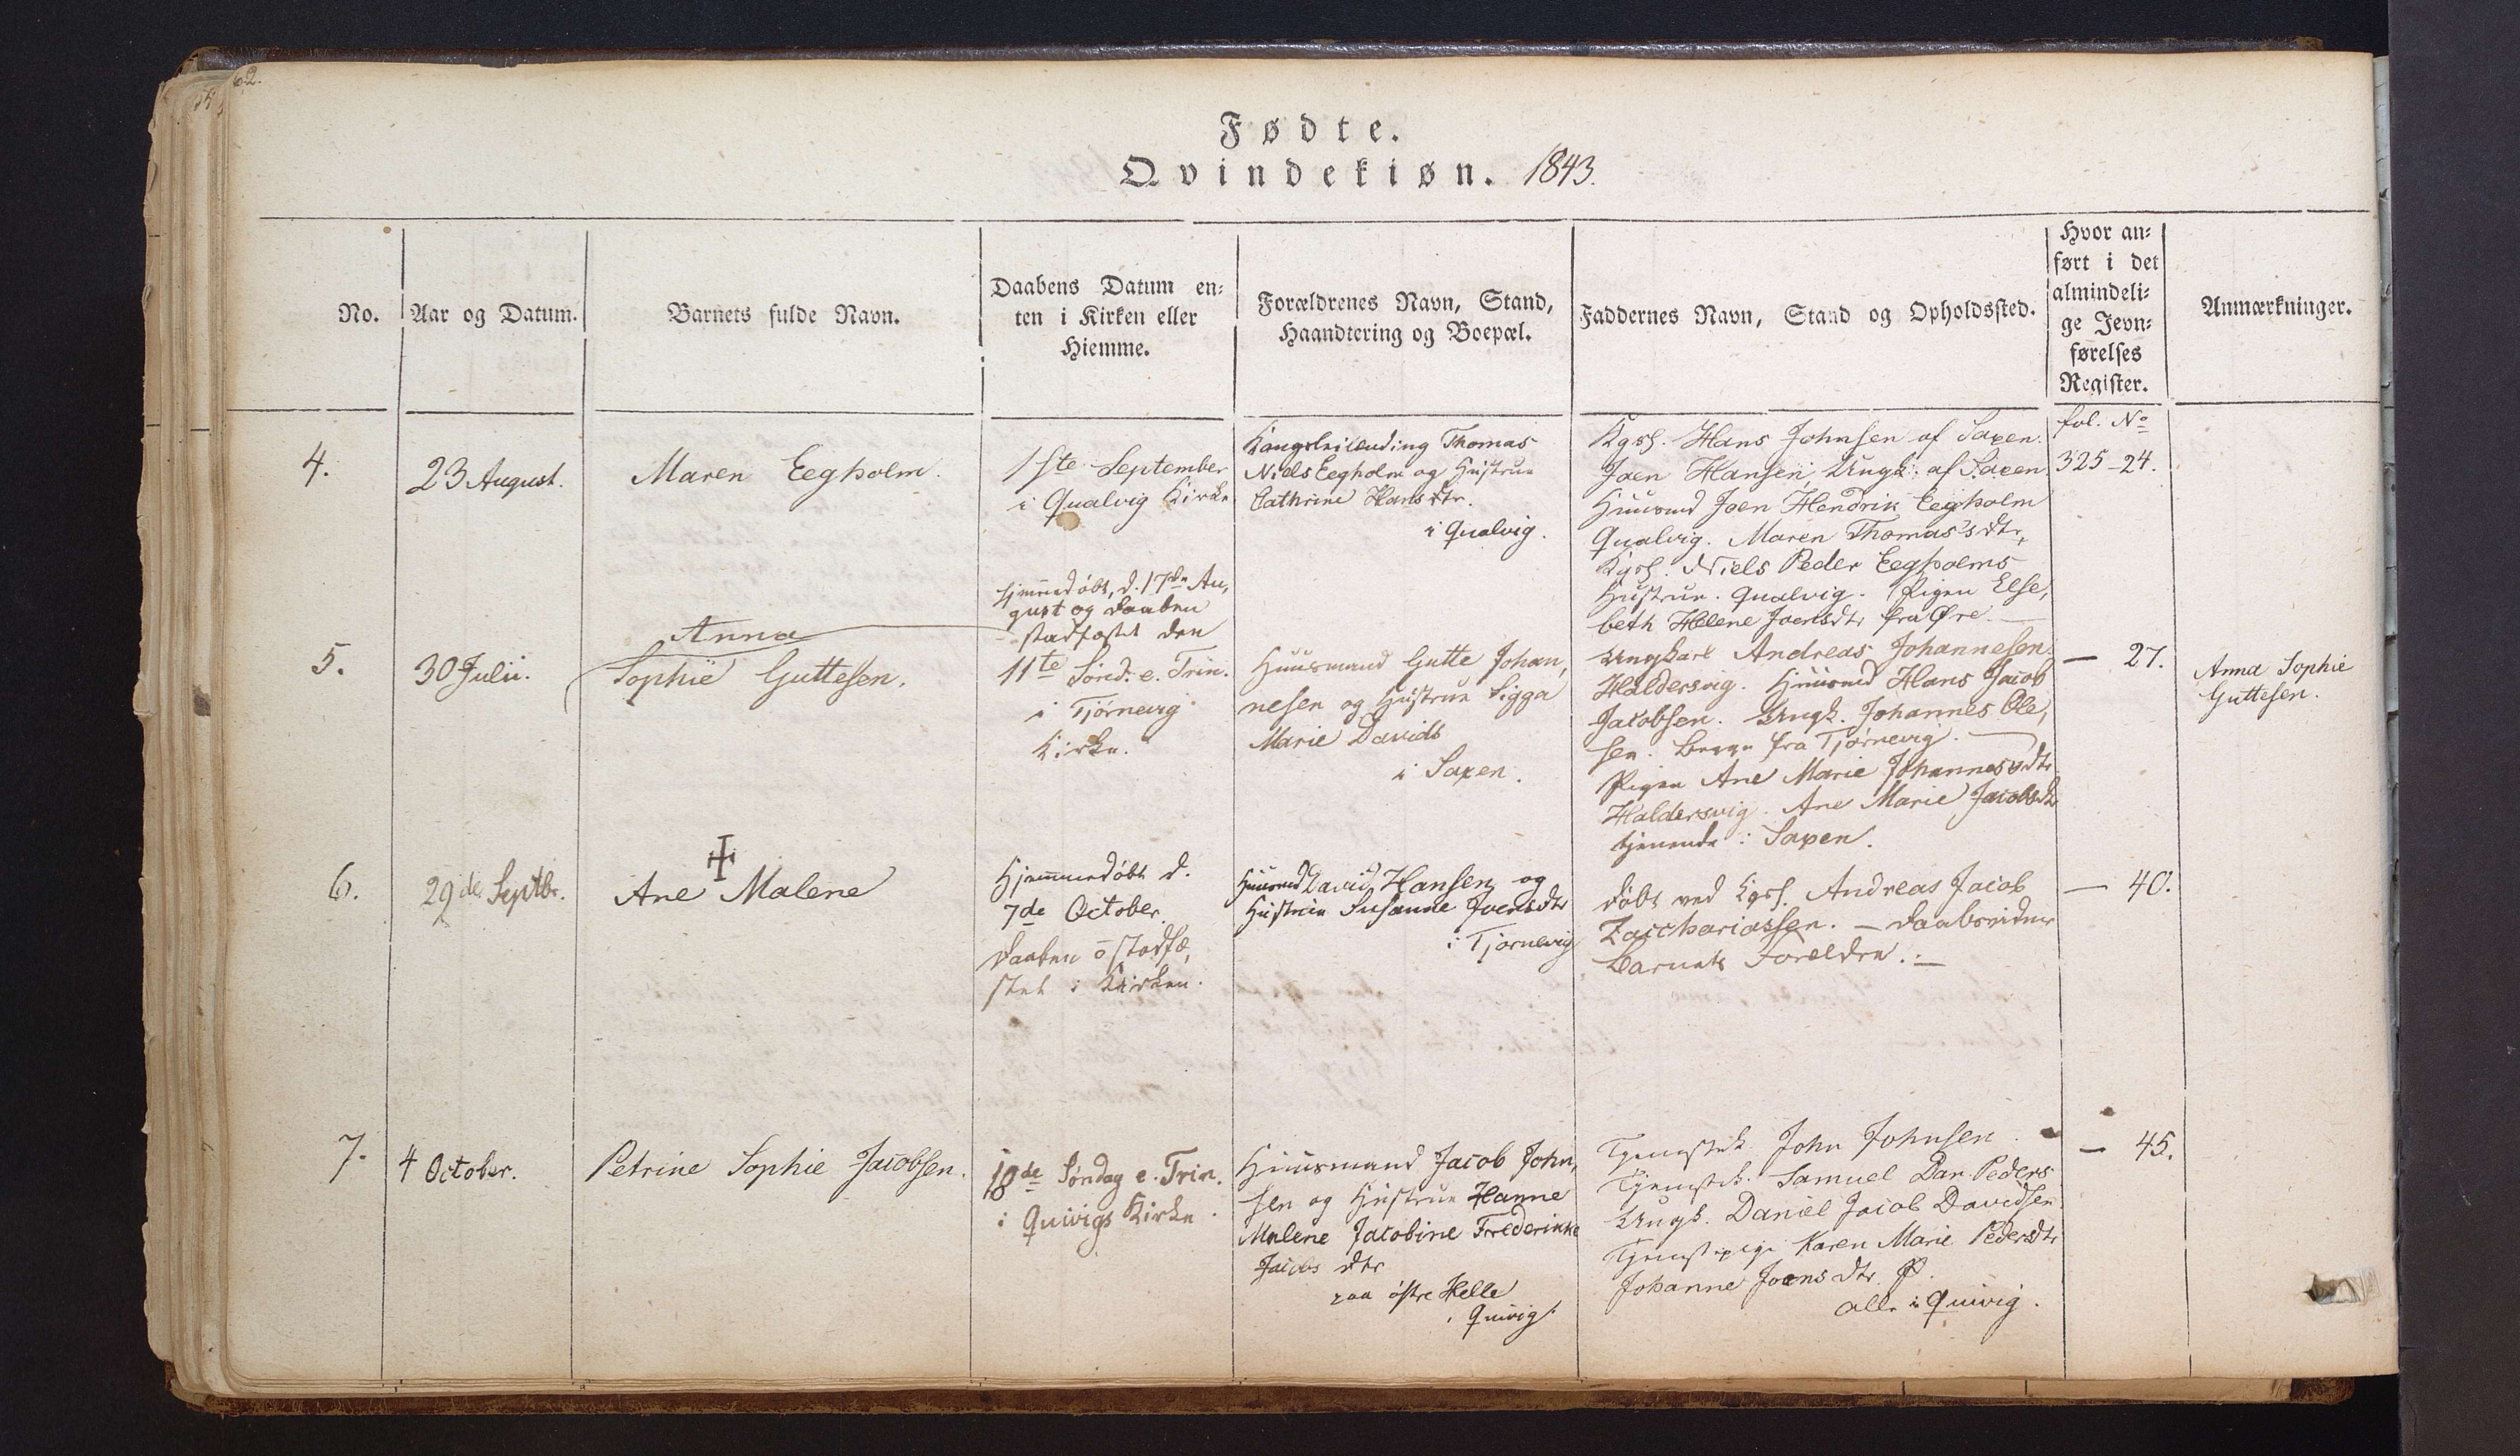 62.
Fødte.
Qvindekiøn. 1843.
No.
Aar og Datum.
Barnets fulde Navn.
Daabens Datum en=
ten i Kirken eller
Hiemme.
Forældrenes Navn, Stand,
Haandtering og Boepæl.
Faddernes Navn, Stand og Opholdssted.
Hvor an=
ført i det
almindeli=
ge Jevn=
førelses
Register.
Anmærkninger.
4.
23 August.
Maren Eegholm.
1ste September
i Qualvig Kirke
Thomas
Niels Eegholm og Hustrue
Cathrine Hansdtr.
i Qualvig.
Kgsf. Hans Johnsen af Saxen.
Joen Hansen, Ungk. af Saxen
Huusmd Joen Hendrik Eegholm
Qualvig. Maren Thomas's dtr,
Kgsf. Niels Peder Eegholms
Hustrue. Qualvig. Pigen Else,
beth Helene Joensdtr fra Øre.
fol. No
325 - 24.
5.
30 Julii.
Anna
Sophie Guttesen.
Hjemmedøbt, d. 17de Au,
gust og Daaben
stadfæstet den
11te Sønd. e. Trin.
i Tjørnevig
Kirke.
Huusmand Gutte Johan,
nesen og Hustrue Sigga
Marie Davids
i Saxen.
Ungkarl Andreas Johannesen.
Haldersvig. Huusmd Hans Jacob
Jacobsen. Ungk. Johannes Ole,
sen. Begge fra Tjørnevig.
Pigen Ane Marie Johannesdtr
Haldersvig. Ane Marie Jacobsdtr
tjenende i Saxen.
— 27.
Anna Sophie
Guttesen.
6.
29de Septbr.
Ane Malene
Hjemmedøbt d.
7de October.
Daaben ō stadfæ,
stet i Kirken.
Huusmd David Hansen og
Hustrue Susanne Joensdtr
i Tjørnevig
døbt ved Kgsf. Andreas Jacob
Zacchariassen. — Daabsvidner
Barnets Forældre. —
— 40.
7.
4 October.
Petrine Sophie Jacobsen.
18de Søndag e. Trin.
i Qvivigs Kirke.
Huusmand Jacob John,
sen og Hustrue Hanne
Malene Jacobine Frederikke
Jacobs dtr
paa østre Helle
i Qvivig.
Tjenestek. John Johnsen.
Tjenestek. Samuel Dan. Peders
Ungk. Daniel Jacob Davidsen.
Tjenestepige Karen Marie Pedersdtr
Johanne Joensdtr. P.
alle i Qvivig.
— 45.